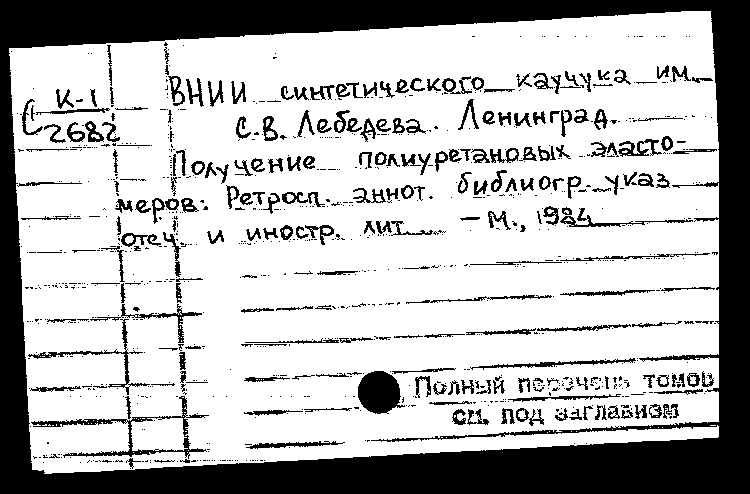 К-1
С 2682
ВНИИ синтетического каучука им.
С.В. Лебедева. Ленинград.
Получение полиуретановых эласто-
меров: Ретросп. аннот. библиогр. указ.
отеч. и иностр. лит. — М., 1984
Полный перечень томов
см. под заглавием